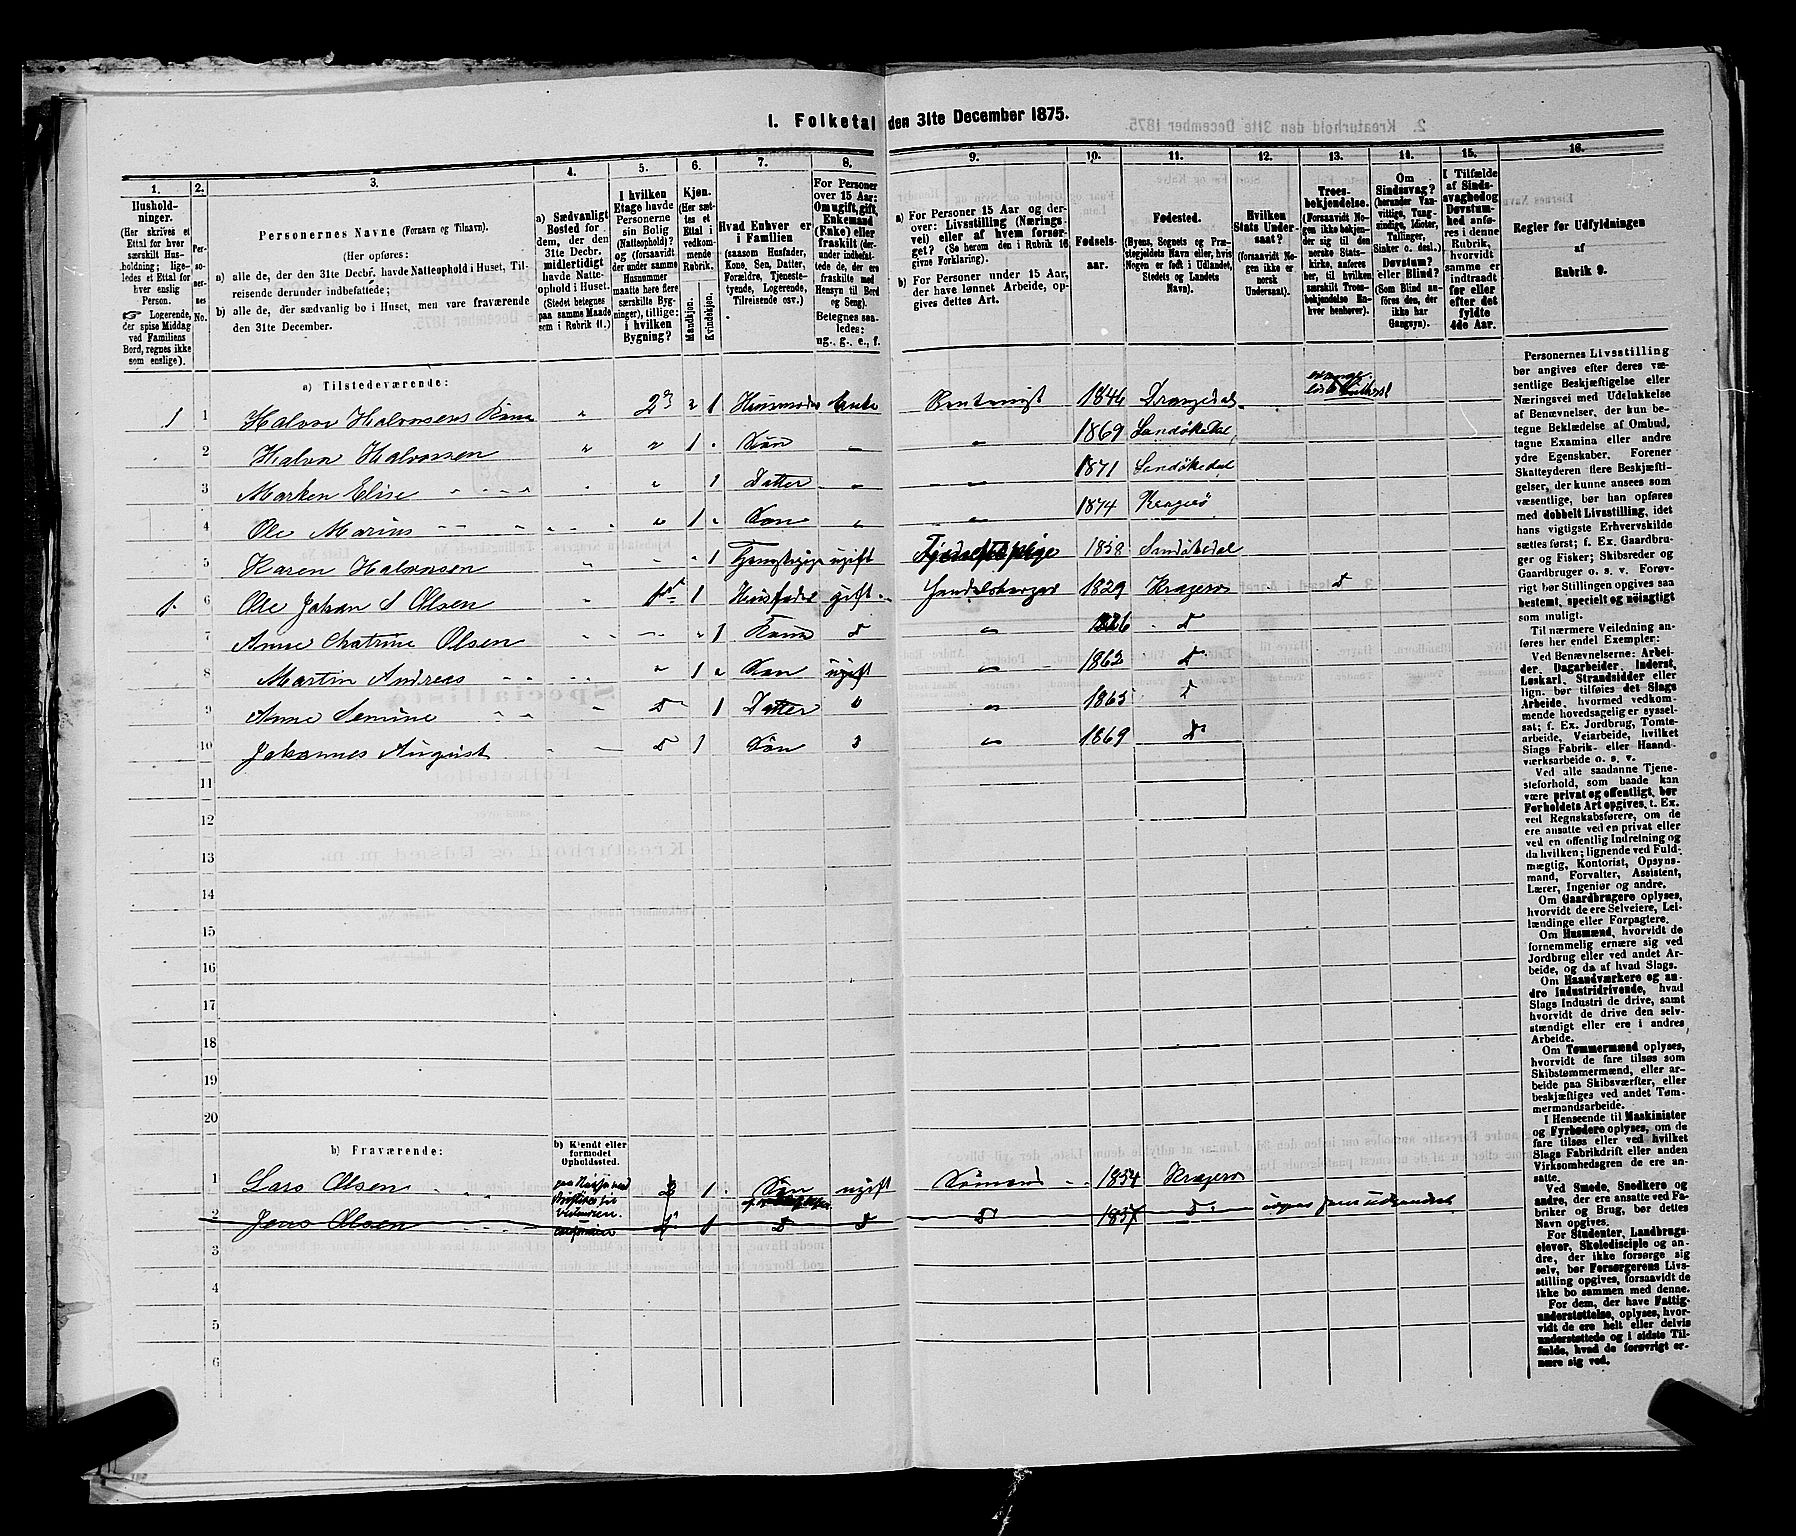 1. Folketal den 31te December 1875.
1. 2. 3. 4. 5. 6. 7. 8. 9. 10. 11. 12. 13. 14. 15. 16.
Hushold-
ninger.
(Her skrives et
Ettal for hver
særskilt Hus-
holdning; lige-
ledes et Ettal for
hver enslig
Person.
☞ Logerende,
der spise Middag
ved Familiens
Bord, regnes ikke
som enslige).
Per-
so-
ner-
nes
No.
Personernes Navne (Fornavn og Tilnavn).
(Her opføres:
a) alle de, der den 31te Decbr. havde Natteophold i Huset, Til-
reisende derunder indbefattede;
b) alle de, der sædvanlig bo i Huset, men vare fraværende
den 31te December.
a) Sædvanligt
Bosted for
dem, der den
31te Decbr.
midlertidigt
havde Natte-
ophold i Huset.
(Stedet betegnes
paa samme Maade
som i Rubrik 11.)
I hvilken
Etage havde
Personerne
sin Bolig
(Natteophold)?
og (forsaavidt
der under samme
Husnummer
maatte høre flere
særskilte Byg-
ninger), tillige:
i hvilken
Bygning?
Kjøn.
(Her sæt-
tes et
Ettal i
vedkom-
mende
Rubrik.
Mandkjøn.
Kvindekjøn.
Hvad Enhver er
i Familien
(saasom Husfader,
Kone, Søn, Datter,
Forældre, Tjeneste-
tyende, Logerende,
Tilreisende osv.)
For Personer
over 15 Aar:
Om ugift, gift,
Enkemand
(Enke) eller
fraskilt (der-
under indbefat-
tede de, der ere
fraskilte med
Hensyn til Bord
og Seng).
Betegnes saa-
ledes:
ug., g., e., f.
a) For Personer 15 Aar og der-
over: Livsstilling (Nærings-
vei) eller af hvem forsør-
get? (Se herom den i Rubrik 16
givne Forklaring).
b) For Personer under 15 Aar,
der have lønnet Arbeide, op-
gives dettes Art.
Fødsels-
aar.
Fødested.
(Byens, Sognets og Præ-
stegjeldets Navn, eller, hvis
Nogen er født i Udlandet,
Stedets og Landets
Navn).
Hvilken
Stats Under-
saat?
(forsaavidt No-
gen ikke er
norsk
Undersaat).
Troes-
bekjendelse.
(Forsaavidt No-
gen ikke bekjen-
der sig til den
norske Stats-
kirke, anføres
her, til hvilken
særskilt Troes-
bekjendelse En-
hver henhører).
Om
Sindssvag?
(herunder Van-
vittige, Tung-
sindige, Idioter,
Tullinger,
Sinker o. desl.)
Døvstum?
eller Blind?
(Som Blind an-
føres den, der
ikke har
Gangsyn).
I Tilfælde
af Sinds-
svaghed og
Døvstum-
hed anfø-
res i denne
Rubrik,
hvorvidt
samme er
indtraadt
før eller
efter det
fyldte
4de Aar.
Regler for Udfyldningen
af
Rubrik 9.
a) Tilstedeværende:
1 1 Halvor Halvorsens Kone " 2 " 1 Husmoder Enke 1846 Drangedal
2 Halvor Halvorsen " " 1 Søn 1869 Sandøkedal
3 Marken Elise " " " " 1 Datter 1871 Sandøkedal
4 Ole Marius " 1 Søn 1874 Kragerø
5 Karen Halvorsen 1 ugift 1858 Sandøkedal
1. 6 Ole Johan S Olsen 1 Husfader gift Handelsborger 1829 Kragerø D
7 Anne Olsen 1 Kone D D
8 Martin Andreas 1 Søn ugift 1862 D
9 Anne Semine D 1 Datter 1865 D
10 Johannes August D 1 Søn 1869 D
11
12
13
14
15
16
17
18
19
20
b) Fraværende:
b) Kjendt eller
formodet
Opholdssted.
1 Lars Olsen 1 Søn ugift Sømand 1854 Kragerø
2 Jens Olsen 1 D D D D
3
4
5
6
Personernes Livsstilling
bør angives efter deres væ-
sentlige Beskjæftigelse eller
Næringsvei med Udelukkelse
af Benævnelser, der kun be-
tegne Beklædelse af Ombud,
tagne Examina eller andre
ydre Egenskaber. Forener
Skatteyderen flere Beskjæfti-
gelser, der kunne ansees som
væsentlige, bør han opføres
med dobbelt Livsstilling, idet
hans vigtigste Erhvervskilde
sættes først; f. Ex. Gaardbru-
ger og Fisker; Skibsreder og
Gaardbruger o. s. v. Forøv-
rigt bør Stillingen opgives saa
bestemt, specielt og nøiagtigt
som muligt.
Til nærmere Veiledning an-
føres her endel Exempler:
Ved Benævnelserne: Arbei-
der, Dagarbeider, Inderst,
Løskarl, Strandsidder eller
lign. bør tilføies det Slags
Arbeide, hvormed vedkom-
mende hovedsagelig er syssel-
sat; f. Ex. Jordbrug, Tomte-
arbeide, Veiarbeide, hvilket
Slags Fabrik- eller Haand-
værksarbeide o. s. v.
Ved alle saadanne Tjene-
steforhold, som baade kan
være privat og offentligt, bør
Forholdets Art opgives, t. Ex.
ved Regnskabsførere, om de
ere ansatte ved en privat eller
ved en offentlig Indretning og
da hvilken; lignende ved Fuld-
mægtig, Kontorist, Opsyns-
mand, Forvalter, Assistent,
Lærer, Ingeniør og andre.
Om Gaardbrugere oplyses,
hvorvidt de ere Selveiere, Lei-
lændinge eller Forpagtere.
Om Husmænd, hvorvidt de
fornemmelig ernære sig ved
Jordbrug eller ved andet Ar-
beide, og da af hvad Slags.
Om Haandværkere og an-
dre Industridrivende, hvad
Slags Industri de drive, samt
hvorvidt de drive den selv-
stændigt eller ere i andres
Arbeide.
Om Tømmermænd oplyses,
hvorvidt de fare tilsøs som
Skibstømmermænd, eller ar-
beide paa Skibsværfter, eller
beskjæftiges ved andet Tøm-
mermandsarbeide.
I Henseende til Maskinister
og Fyrbødere oplyses, om de
fare tilsøs eller ved hvilket
Slags Fabrikdrift eller anden
Virksomhedsgren de ere an-
satte.
Ved Smede, Snedkere og
andre, der ere ansatte ved Fa-
briker og Brug, bør dettes
Navn opgives.
For Studenter, Landbrugs-
elever, Skoledisciple og an-
dre, der ikke forsørge sig
selv, bør Forsørgerens Livs-
stilling opgives, forsaavidt de
ikke bo sammen med denne.
For dem, der have Fattig-
understøttelse, oplyses, hvor-
vidt de ere helt eller delvis
understøttede og i sidste Til-
fælde, hvad de forøvrigt er-
nære sig ved.